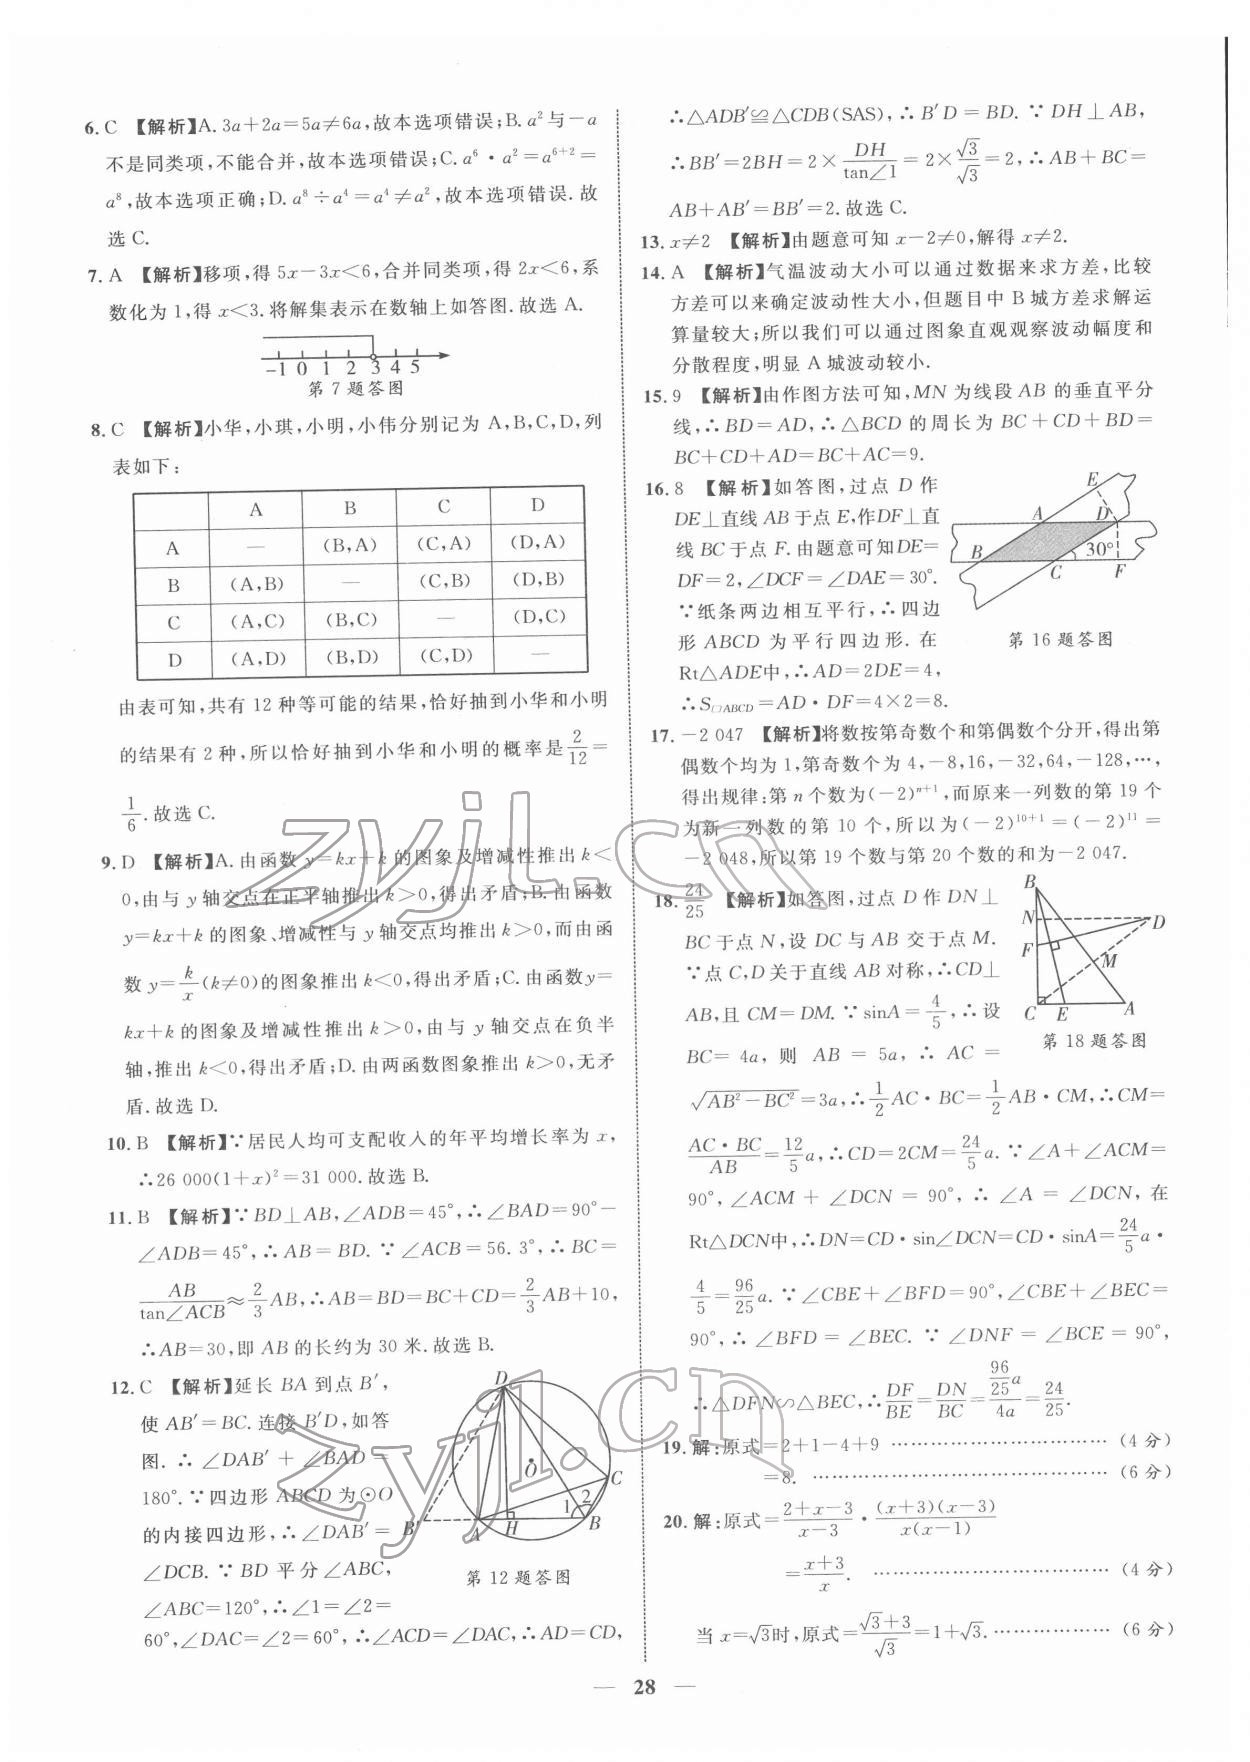 6. C 【解析】A. 3a+2a=5a≠6a,故本选项错误;B. a²与-a
不是同类项,不能合并,故本选项错误;C. a⁶·a²=a⁶⁺²=
a⁸,故本选项正确;D. a⁸÷a⁴=a⁴≠a²,故本选项错误.故
选 C.
7. A 【解析】移项,得 5x-3x<6,合并同类项,得 2x<6,系
数化为 1,得 x<3. 将解集表示在数轴上如答图.故选 A.
-1 0 1 2 3 4 5
第 7 题答图
8. C 【解析】小华,小琪,小明,小伟分别记为 A,B,C,D,列
表如下:
A B C D
A — (B,A) (C,A) (D,A)
B (A,B) — (C,B) (D,B)
C (A,C) (B,C) — (D,C)
D (A,D) (B,D) (C,D) —
由表可知,共有 12 种等可能的结果,恰好抽到小华和小明
的结果有 2 种,所以恰好抽到小华和小明的概率是 2/12=
1/6.故选 C.
9. D 【解析】A. 由函数 y=kx+k 的图象及增减性推出 k<
0,由与 y 轴交点在正半轴推出 k>0,得出矛盾;B. 由函数
y=kx+k 的图象、增减性与 y 轴交点均推出 k>0,而由函
数 y=k/x(k≠0)的图象推出 k<0,得出矛盾;C. 由函数y=
kx+k 的图象及增减性推出 k>0,由与 y 轴交点在负半
轴,推出 k<0,得出矛盾;D. 由两函数图象推出 k>0,无矛
盾.故选 D.
10. B 【解析】∵居民人均可支配收入的年平均增长率为 x,
∴26 000(1+x)²=31 000.故选 B.
11. B 【解析】∵BD⊥AB,∠ADB=45°,∴∠BAD=90°-
∠ADB=45°,∴AB=BD. ∵∠ACB=56. 3°,∴BC=
AB/tan∠ACB≈2/3AB,∴AB=BD=BC+CD=2/3AB+10,
∴AB=30,即 AB 的长约为 30 米.故选 B.
12. C 【解析】延长 BA 到点 B′,
使 AB′=BC. 连接 B′D,如答
图. ∴∠DAB′+∠BAD=
180°. ∵四边形 ABCD 为⊙O
的内接四边形,∴∠DAB′=
∠DCB. ∵BD 平分∠ABC,
∠ABC=120°,∴∠1=∠2=
60°,∠DAC=∠2=60°,∴∠ACD=∠DAC,∴AD=CD,
D O C 1 2 B′ A H B
第 12 题答图
∴△ADB′≌△CDB(SAS),∴B′D=BD. ∵DH⊥AB,
∴BB′=2BH=2×DH/tan∠1=2×√3/√3=2,∴AB+BC=
AB+AB′=BB′=2.故选 C.
13. x≠2 【解析】由题意可知 x-2≠0,解得 x≠2.
14. A 【解析】气温波动大小可以通过数据来求方差,比较
方差可以来确定波动性大小,但题目中 B 城方差求解运
算量较大;所以我们可以通过图象直观观察波动幅度和
分散程度,明显 A 城波动较小.
15. 9 【解析】由作图方法可知,MN 为线段 AB 的垂直平分
线,∴BD=AD,∴△BCD 的周长为 BC+CD+BD=
BC+CD+AD=BC+AC=9.
16. 8 【解析】如答图,过点 D 作
DE⊥直线 AB 于点 E,作DF⊥直
线 BC 于点 F. 由题意可知DE=
DF=2,∠DCF=∠DAE=30°.
∵纸条两边相互平行,∴四边
形 ABCD 为平行四边形. 在
Rt△ADE中,∴AD=2DE=4,
∴S□ABCD=AD·DF=4×2=8.
E A D B 30° C F
第 16 题答图
17. -2 047 【解析】将数按第奇数个和第偶数个分开,得出第
偶数个均为 1,第奇数个为 4,-8,16,-32,64,-128,…,
得出规律:第 n 个数为(-2)ⁿ⁺¹,而原来一列数的第 19 个
为新一列数的第 10 个,所以为(-2)¹⁰⁺¹=(-2)¹¹=
-2 048,所以第 19 个数与第 20 个数的和为-2 047.
18. 24/25 【解析】如答图,过点 D 作 DN⊥
BC 于点 N,设 DC 与 AB 交于点 M.
∵点 C,D 关于直线 AB 对称,∴CD⊥
AB,且 CM=DM. ∵sinA=4/5,∴设
BC=4a,则 AB=5a,∴AC=
√(AB²-BC²)=3a,∴1/2AC·BC=1/2AB·CM,∴CM=
AC·BC/AB=12/5a,∴CD=2CM=24/5a. ∵∠A+∠ACM=
90°,∠ACM+∠DCN=90°,∴∠A=∠DCN,在
Rt△DCN中,∴DN=CD·sin∠DCN=CD·sinA=24/5a·
4/5=96/25a. ∵∠CBE+∠BFD=90°,∠CBE+∠BEC=
90°,∴∠BFD=∠BEC. ∵∠DNF=∠BCE=90°,
∴△DFN∽△BEC,∴DF/BE=DN/BC=96/25a/4a=24/25.
B N D F M C E A
第 18 题答图
19. 解:原式=2+1-4+9 ……………………………… (4 分)
=8. ……………………………… (6 分)
20. 解:原式=2+x-3/x-3·(x+3)(x-3)/x(x-1)
=x+3/x. ……………………………… (4 分)
当 x=√3时,原式=√3+3/√3=1+√3. ……………… (6 分)
— 28 —
zyjl.cn
zyjl.cn